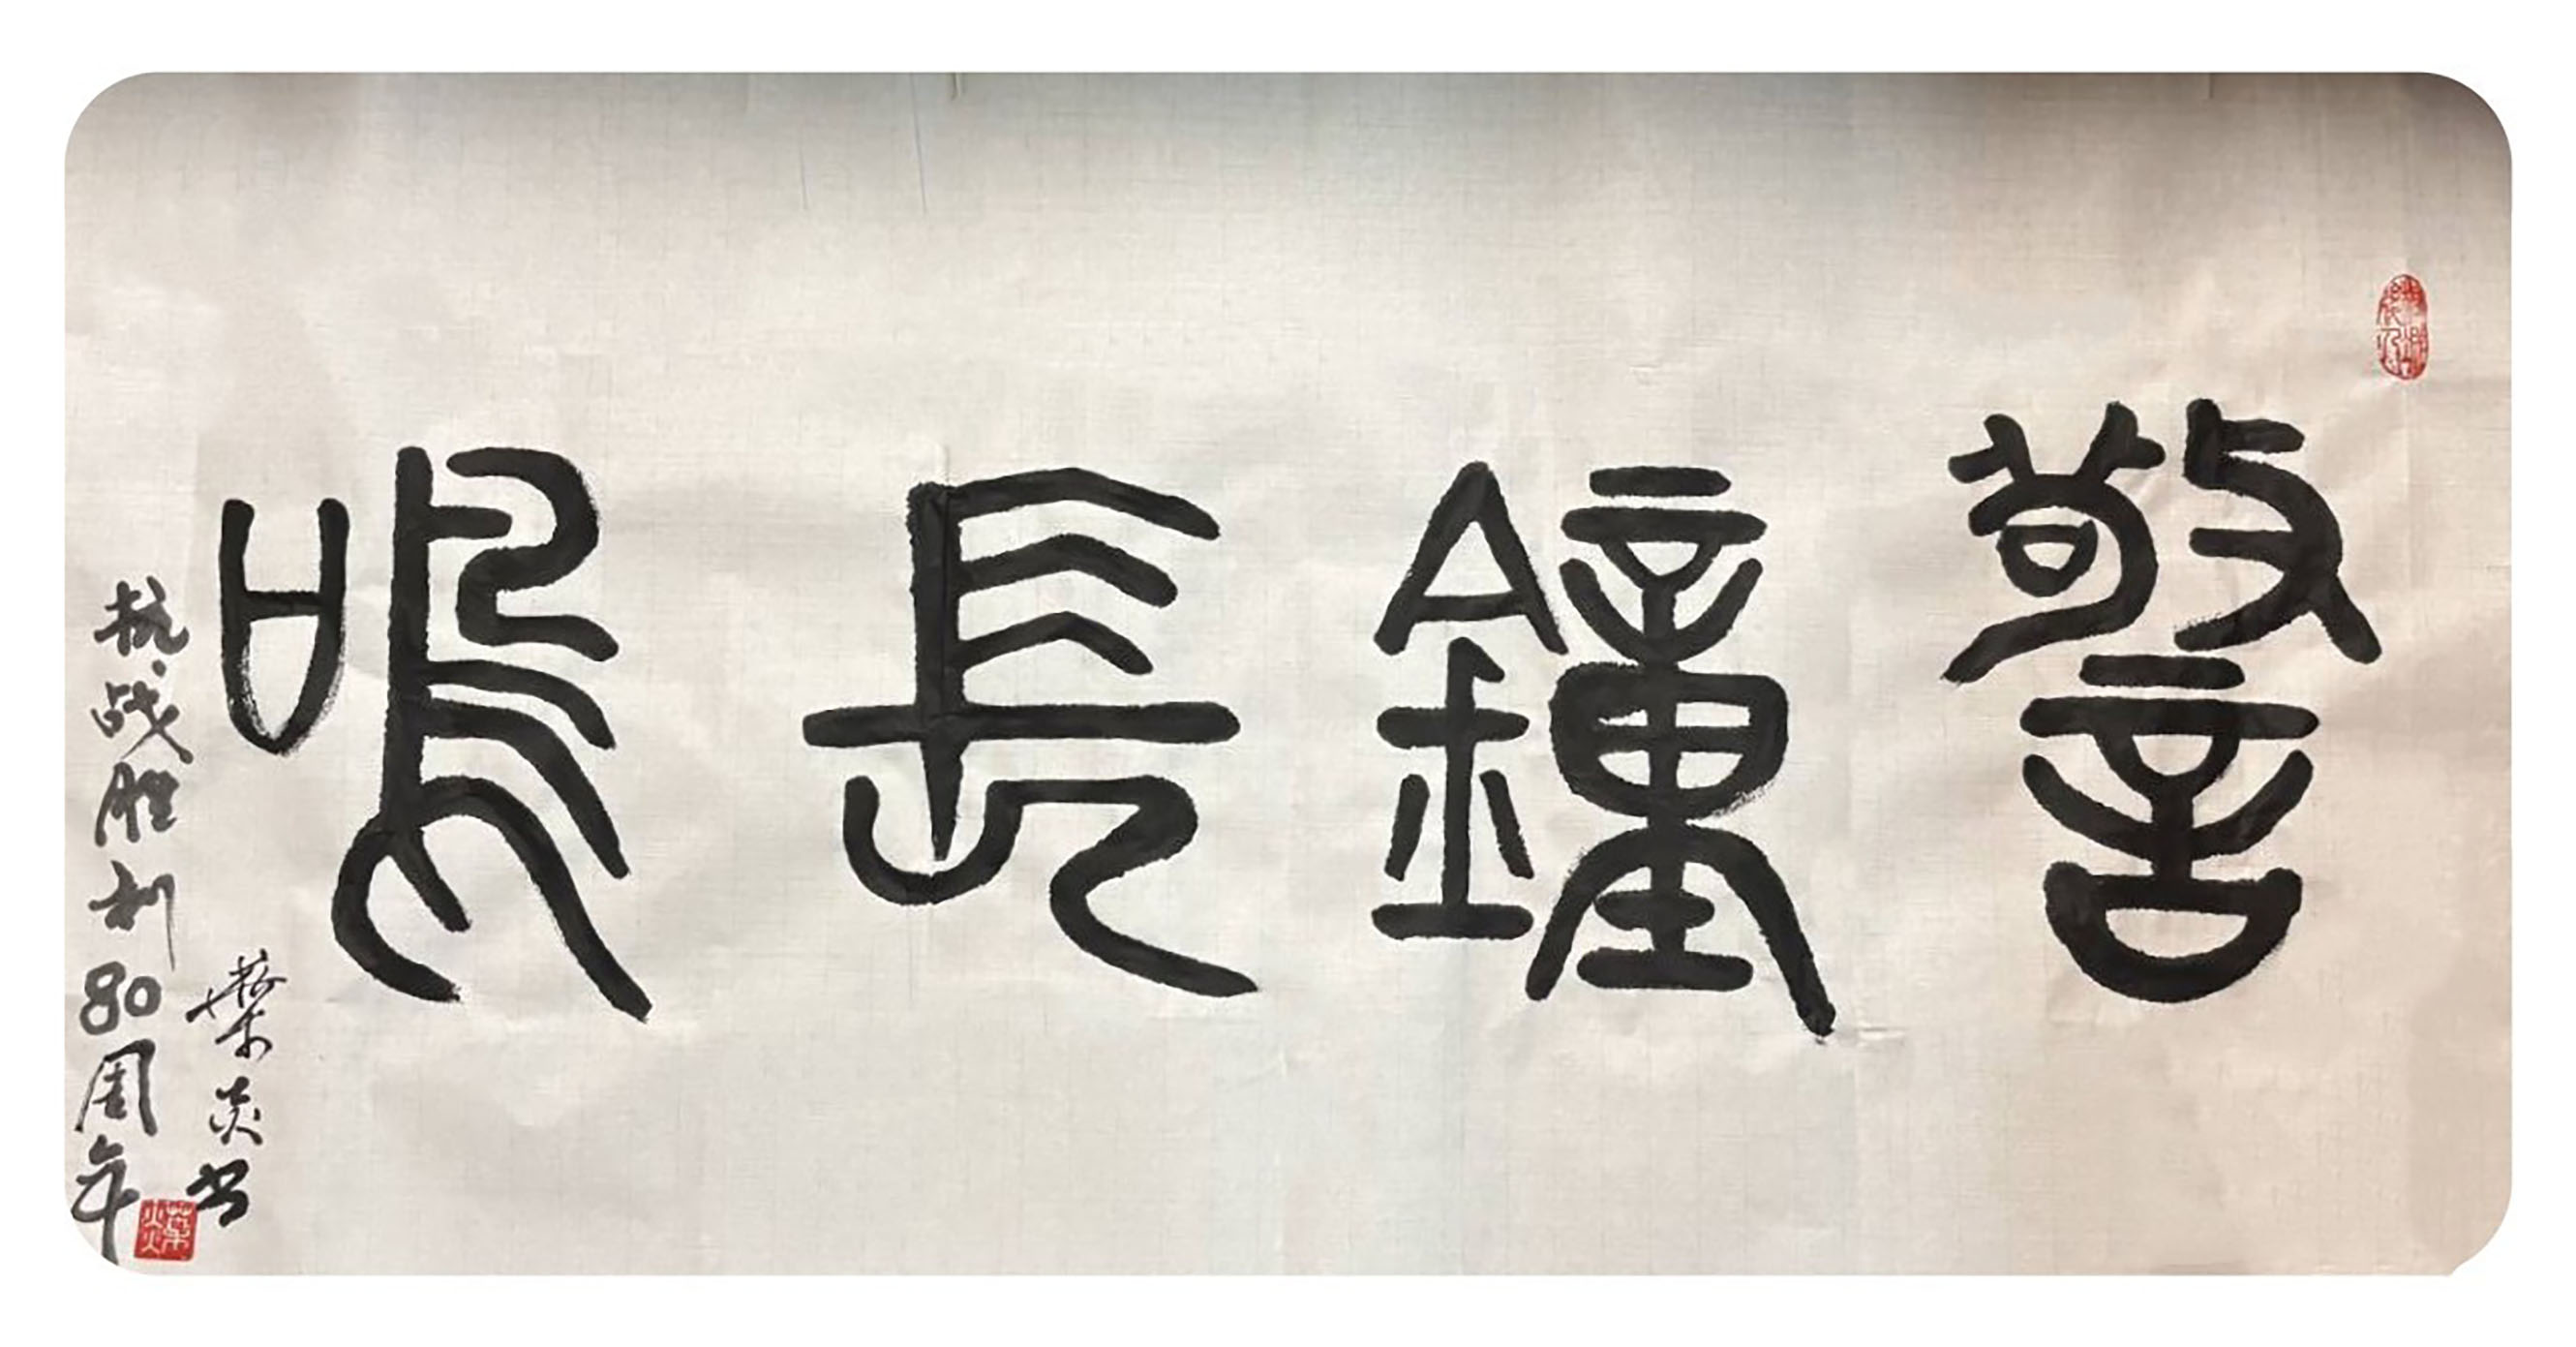 警鐘長鳴
葉炎书
抗战胜利80周年
葉炎